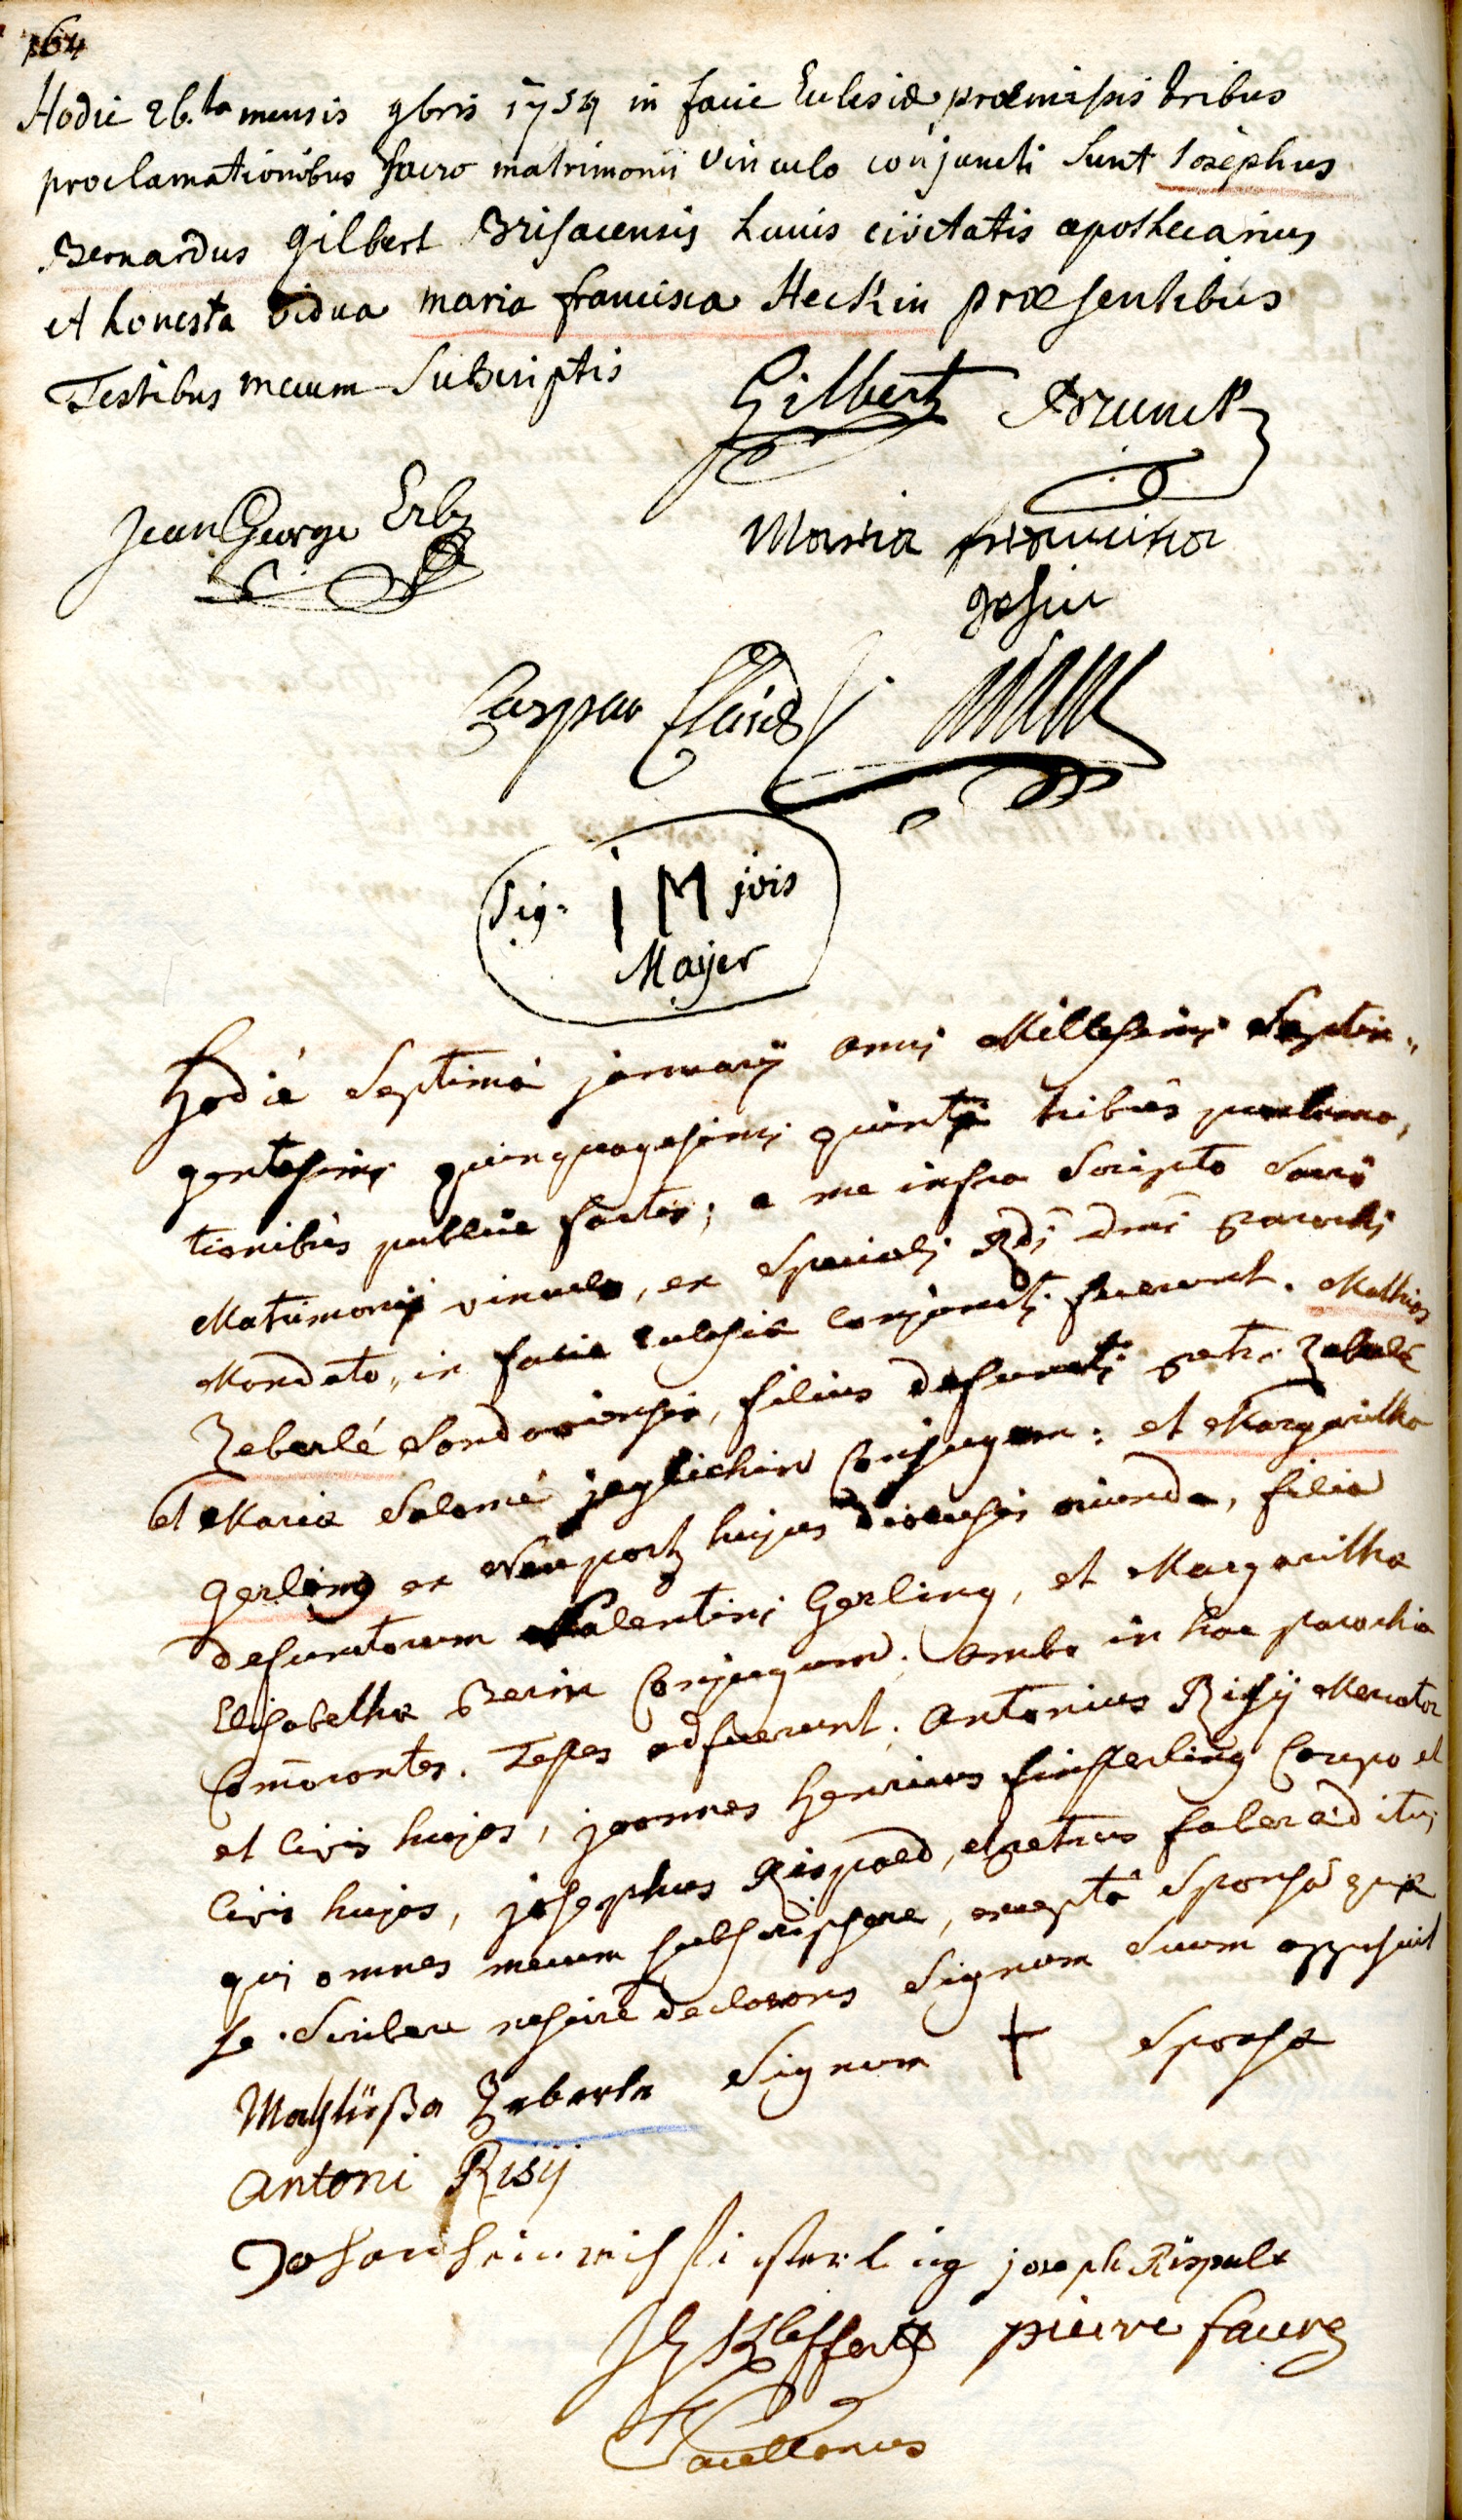 164
Hodie 26.ta mensis 9bris 1754 in facie Eulesiæ præmissis tribus
proclamationibus sacro matrimonii vinculo conjuncti sunt Josephus
Bernardus gilbert Brisacensis huius civitatis apothecarius
et honesta vidua maria francisca Heckin præsentibus
Testibus mecum Subscriptis
Gilbert Brunck
Jean George Erb
Maria francisca
Caspar
Sig. I M jois
Mayer
Hodie Septimâ januarij anni Millesimi Septin-
gentesimi quinquagesimi quinti tribus proclama-
tionibus publice factis, a me infra Scripto Sacro
Matrimonij vinculo, ex Speciali Rdi Dni parochi
Mandato, in facie Eclesiæ Conjuncti fuerunt. Mathias
Zeberlé Sondoviensis, filius defuncti petri Zeberlé
et Maria Salomé jeglichin Conjugum: et Margaritha
Gerling ex Neuportz hujus diocesis oriunda, filia
defunctorum Valentini Gerling, et Margaritha
Elisabetha Berin Conjugum. ambo in hac parochia
Comorantes. Testes adfuerunt. Antonius Risij Mercator
et Civis hujas, joannes Henricus finsterling Caupo et
Civis hujas, josephus Rispald, et petrus faber æditui
qui omnes mecum subscripsere, exceptâ Sponsâ quæ
se Scribere nescire declarans Signum Suum apposuit
Zeberle Signum + Sponsæ
antoni Risij
Johan Heinrich finsterling joseph Rispald
Kleffert pierre faure
Sacellanus